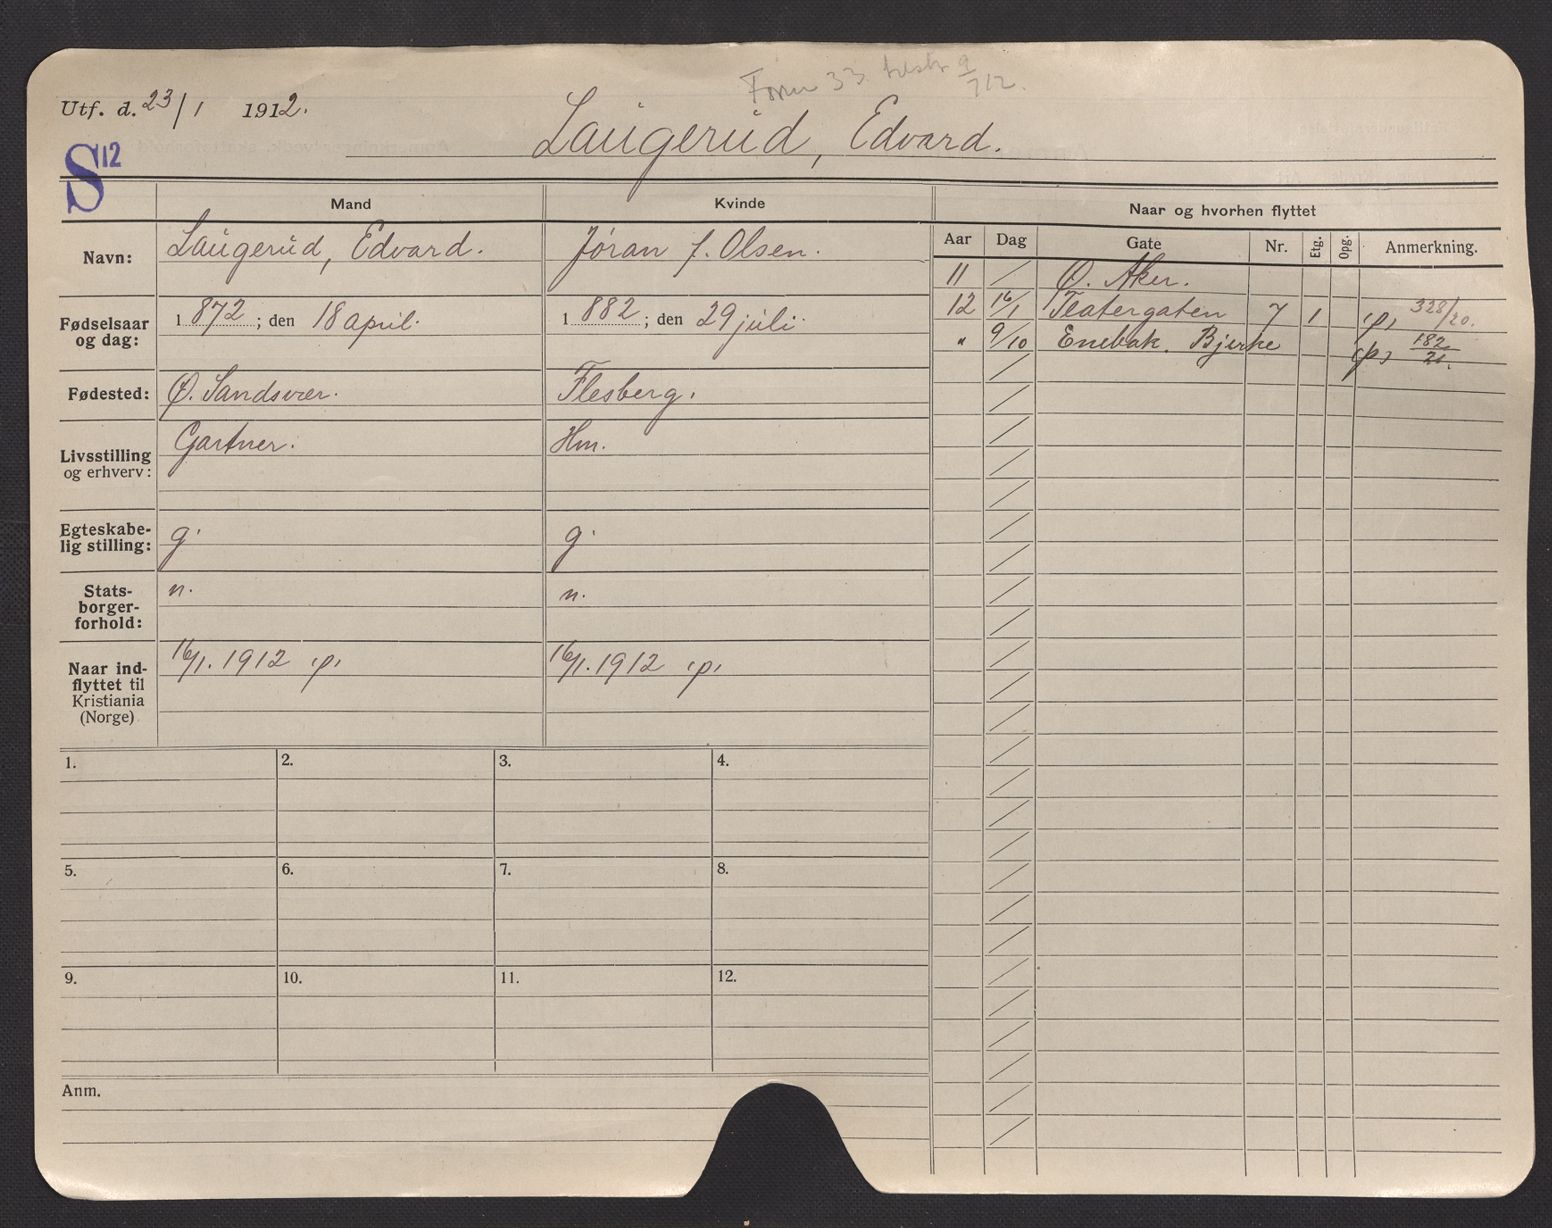 Utf. d. 23/1 1912.
S12
Laugerud, Edvard.
Mand Kvinde
Navn: Laugerud, Edvard. Jøran f. Olsen.
Fødselsaar og dag: 1872; den 18 april. 1882; den 29 juli.
Fødested: Ø. Sandsvær. Flesberg.
Livsstilling og erhverv: Gartner. Hm.
Egteskabelig stilling: g. g.
Statsborgerforhold: n. n.
Naar indflyttet til Kristiania (Norge) 16/1. 1912 ,p, 16/1. 1912 ,p,
1. 2. 3. 4.
5. 6. 7. 8.
9. 10. 11. 12.
Anm.
Naar og hvorhen flyttet
Aar Dag Gate Nr. Etg. Opg. Anmerkning.
11 / Ø. Aker.
12 16/1 Teatergaten 7 1 ,p, 328/20.
" 9/10 Enebak. Bjerke ,p, 182/21.